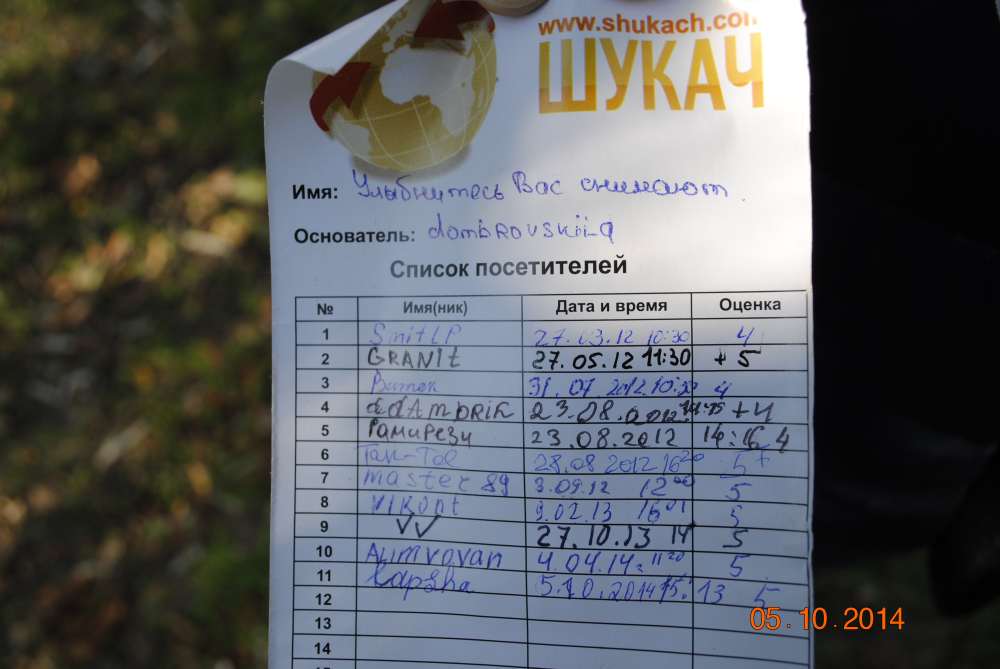 www.shukach.com
ШУКАЧ
Имя: Улыбнитесь Вас снимают.
Основатель: dombrovskii_a
Список посетителей
№ Имя(ник) Дата и время Оценка
1 SmitLP 27.03.12 10:30 4
2 GRANIt 27.05.12 11:30 +5
3 Витек 31.07.2012 4
4 23.08.2012 +4
5 Рамирези 23.08.2012 14:16 4
6 Tak-Tol 28.08 2012 16 20 5+
7 master 89 3.09.12 12 00 5
8 Vikont 9.02.13 16 01 5
9 VV 27.10.13 14 5
10 Aumvovan 4.04.14. 11 20 5
11 5.10.2014 15:13 5
12
13
14
05.10.2014